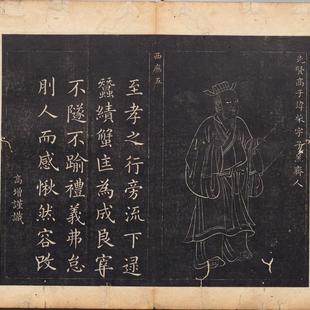 先賢高子諱柴字子羔齊人
西廡五
至孝之行旁流下逮
蠶績蟹匡為成良宰
不隧不踰禮義弗怠
刖人而感愀然容改
高增謹識